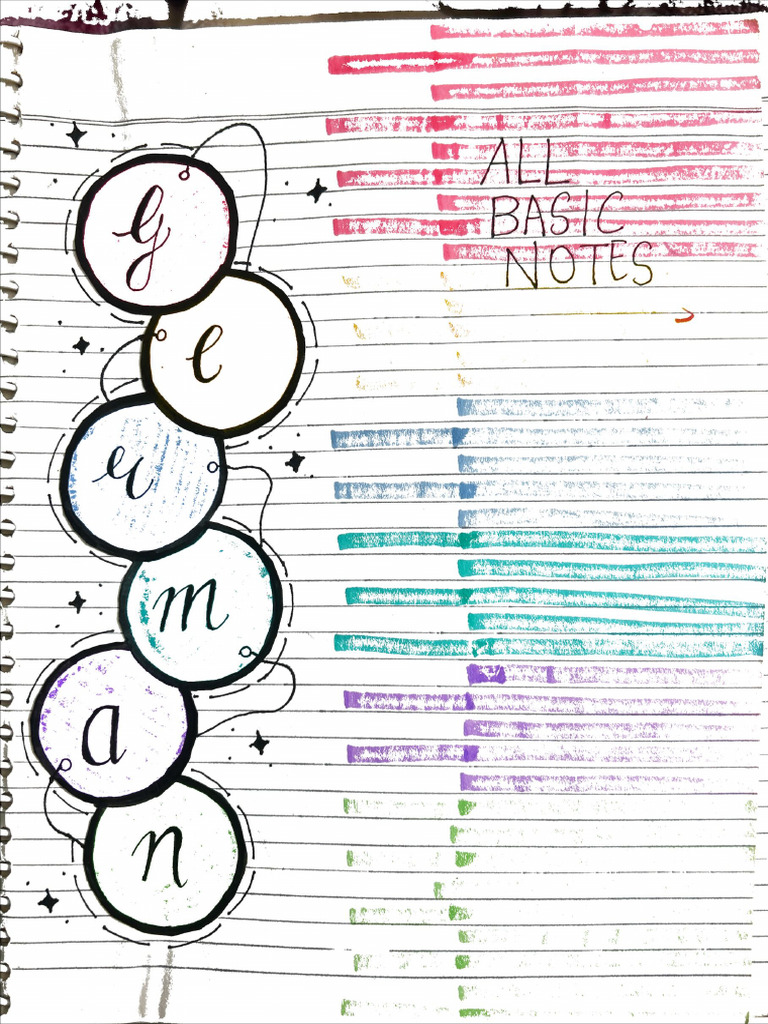 G
e
r
m
a
n
ALL
BASIC
NOTES